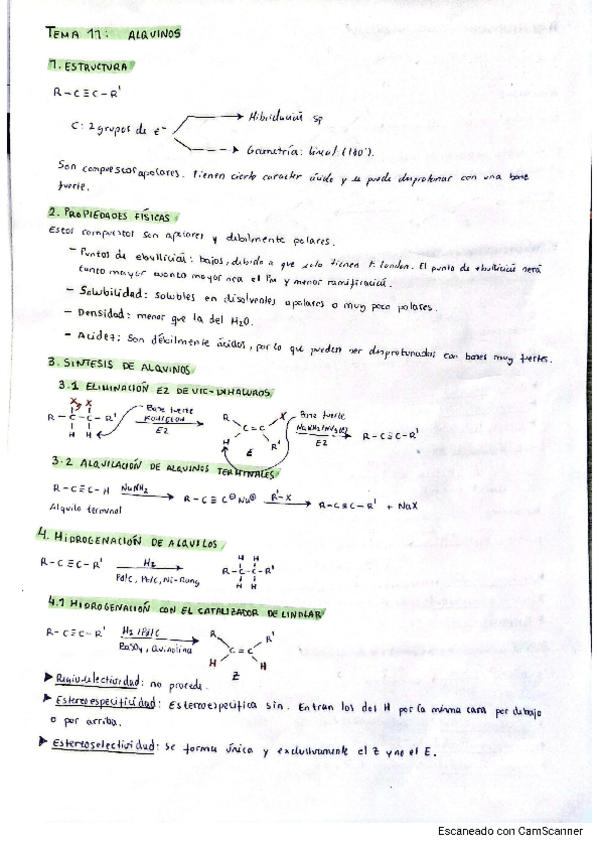 TEMA 11: ALQUINOS
1. ESTRUCTURA
R-C≡C-R'
C: 2 grupos de e⁻
Hibridación sp
Geometría: lineal (180º).
Son compuestos apolares. Tienen cierto caracter ácido y se puede desprotonar con una base
fuerte.
2. PROPIEDADES FÍSICAS
Estos compuestos son apolares y debilmente polares.
- Puntos de ebullición: bajos, debido a que solo tienen F. London. El punto de ebullición será
tanto mayor cuanto mayor sea el Pm y menor ramificación.
- Solubilidad: solubles en disolventes apolares o muy poco polares.
- Densidad: menor que la del H₂O.
- Acidez: Son débilmente ácidos, por lo que pueden ser desprotonados con bases muy fuertes.
3. SINTESIS DE ALQUINOS
3.1 ELIMINACIÓN E2 DE VIC-DIHALUROS
X X
R-C-C-R'
H H
Base fuerte
KOH/EtOH
E2
R X
C=C
H R'
E
Base fuerte
E2
R-C≡C-R'
3.2 ALQUILACIÓN DE ALQUINOS TERMINALES
R-C≡C-H NaNH₂ R-C≡C⊖Na⊕ R'-X R-C≡C-R' + NaX
Alquilo terminal
4. HIDROGENACIÓN DE ALQUILOS
R-C≡C-R' H₂
Pd/C, Pt/C, Ni-Raney
H H
R-C-C-R'
H H
4.1 HIDROGENACIÓN CON EL CATALIZADOR DE LINDLAR
R-C≡C-R' H₂/Pd/C
BaSO₄, Quinolina
R R'
C=C
H H
Z
➤ Regioselectividad: no procede.
➤ Estereoespecificidad: Estereoespecífica sin. Entran los del H por la misma cara por debajo
o por arriba.
➤ Estereoselectividad: se forma única y exclusivamente el Z y no el E.
Escaneado con CamScanner